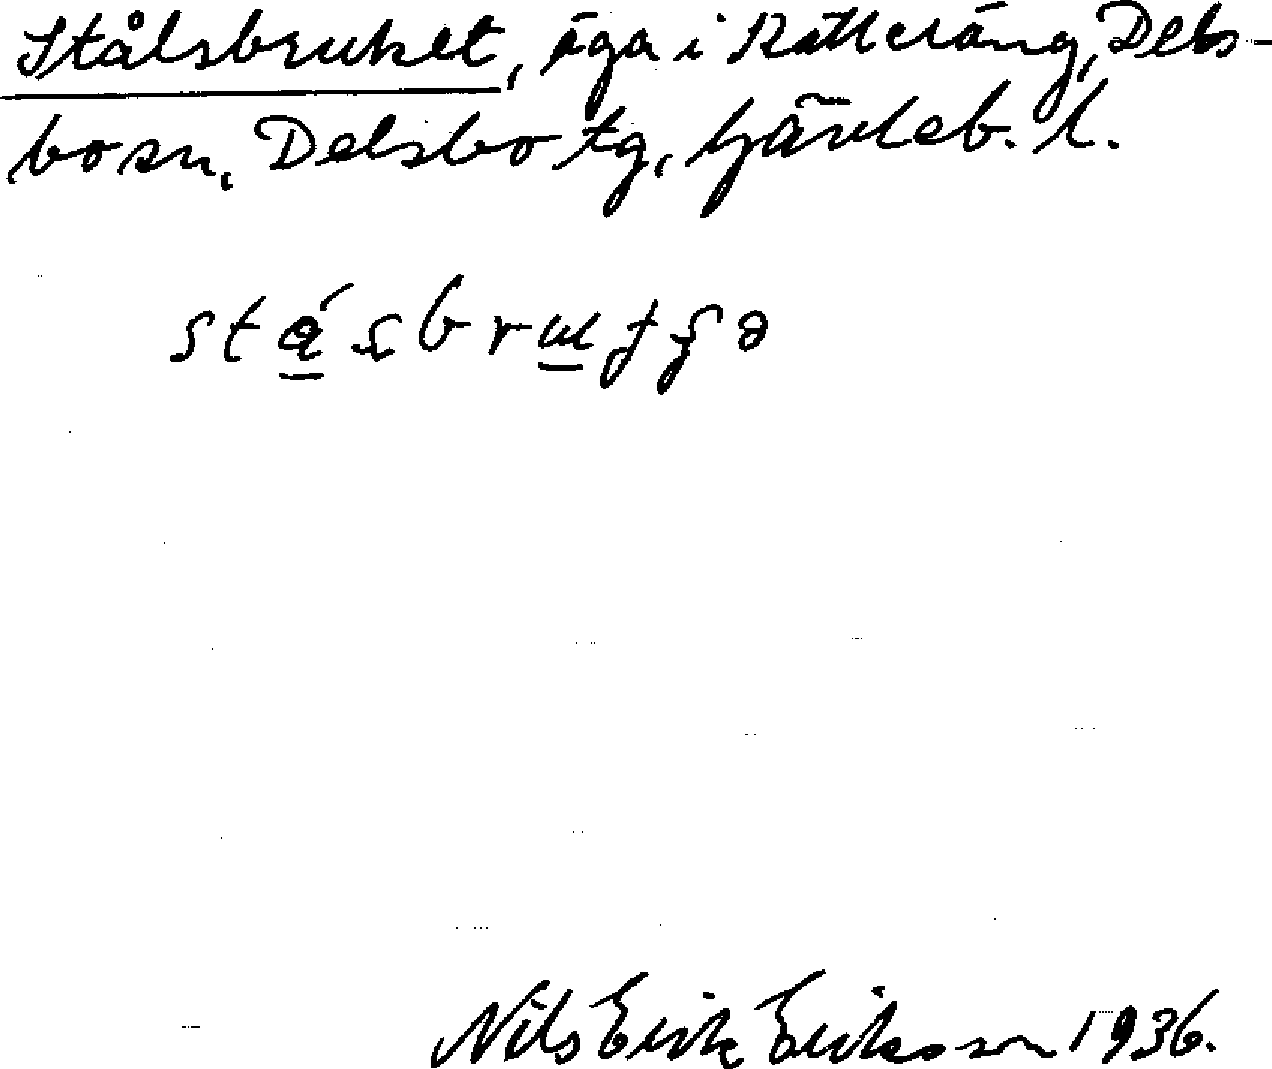 Stålsbruket, äga i Rätteräng, Dels-
bo sn, Delsbo tg, Gävleb. l.
Nils Erik Eriksson 1936.